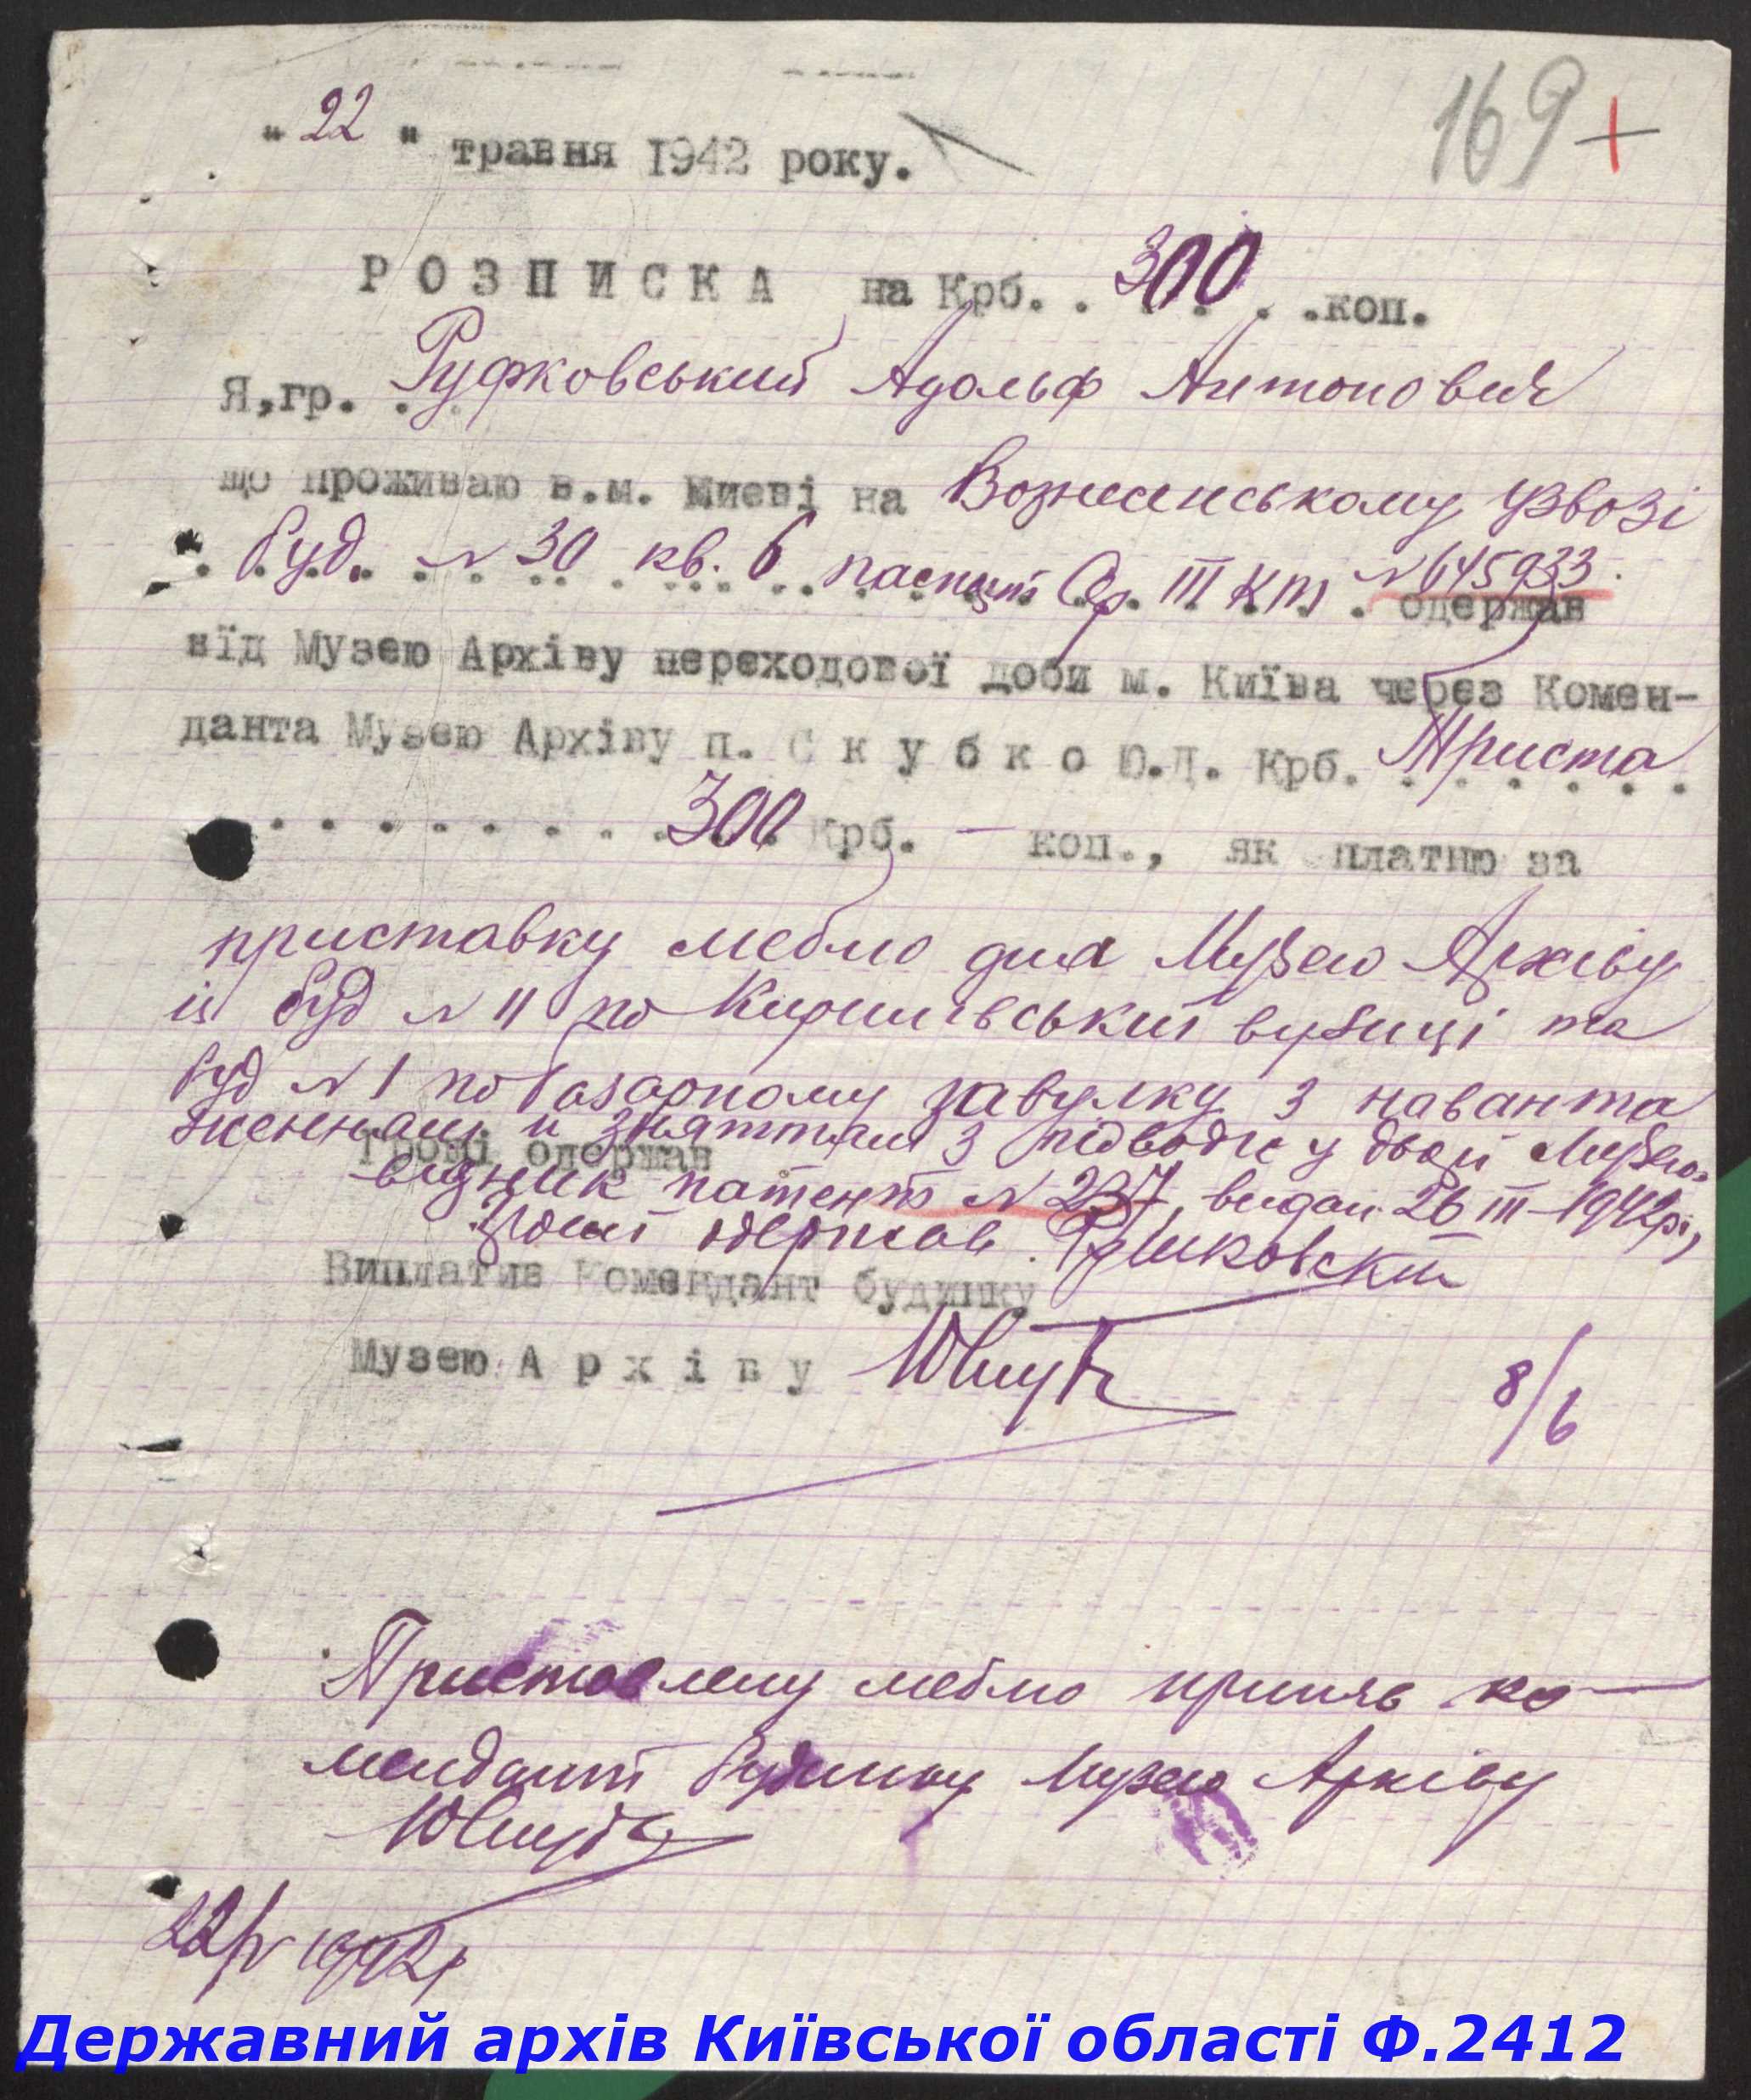 169 +
"22" травня 1942 року.
РОЗПИСКА на Крб. . 300 . . коп.
Я,гр. . Руфковський Адольф Антонович
що проживаю в.м. Києві на Вознесенському узвозі
буд. № 30 кв. 6 паспорт Сер. III КМ № 645933. одержав
від Музею Архіву переходової доби м. Київа через Комен-
данта Музею Архіву п. Скубко Ю.Д. Крб. Триста
300 Крб. — коп., як платню за
приставку меблю для Музею Архіву
із буд № 11 по Кирилівський вулиці та
буд № 1 по базарному завулку з наванта
женням и зняттям з підводи у двойі Музею.
Гроші одержав
візник патент № 237, видан 26 III–1942р.,
Гроші одержав
Виплатив Комендант будинку
Музею Архіву
8/6
Приставлену меблю приняв ко-
мендант будинку Музею Архіву
22/V 1942р
Державний архів Київської області Ф.2412